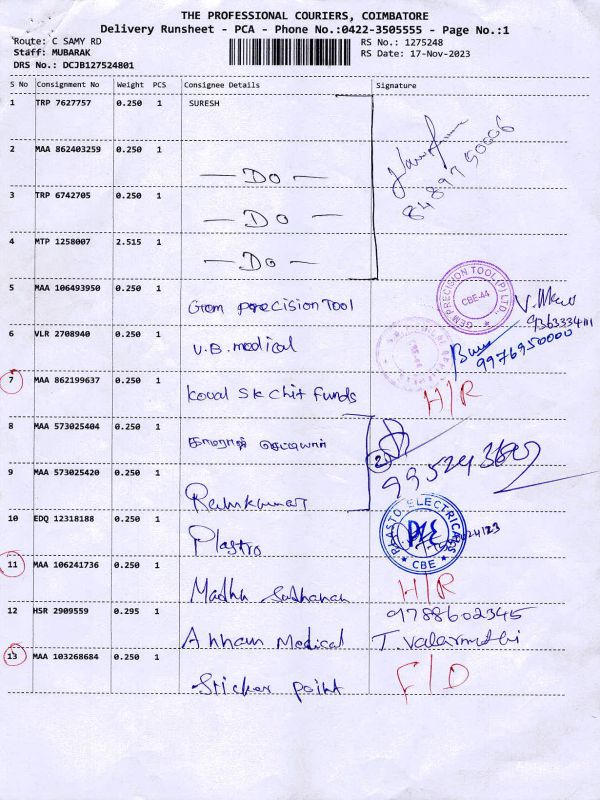 THE PROFESSIONAL COURIERS, COIMBATORE
Delivery Runsheet - PCA - Phone No.:0422-3505555 - Page No.:1
Route: C SAMY RD
Staff: MUBARAK
DRS No.: DCJB127524801
RS No.: 1275248
RS Date: 17-Nov-2023
S No Consignment No Weight PCS Consignee Details Signature
1 TRP 7627757 0.250 1 SURESH
2 MAA 862403259 0.250 1 — DO —
8489750006
3 TRP 6742705 0.250 1 — DO —
4 MTP 1258007 2.515 1 — DO —
5 MAA 106493950 0.250 1 Gem precision Tool
GEM PRECISION TOOL (P) LTD. CBE-44
9363334111
6 VLR 2708940 0.250 1 V.B. medical
9976950000
7 MAA 862199637 0.250 1 Koval Sk chit Funds H/R
8 MAA 573025404 0.250 1 காமராஜ் செட்டியார்
2
9 MAA 573025420 0.250 1 Ramkumar
10 EDQ 12318188 0.250 1 Plastro
PLASTO ELECTRICALS CBE
11 MAA 106241736 0.250 1 Madhu Sadhanan H/R
12 HSR 2909559 0.295 1 Annam Medical
9788602345
T. Valarmathi
13 MAA 103268684 0.250 1 Sticker point F/D